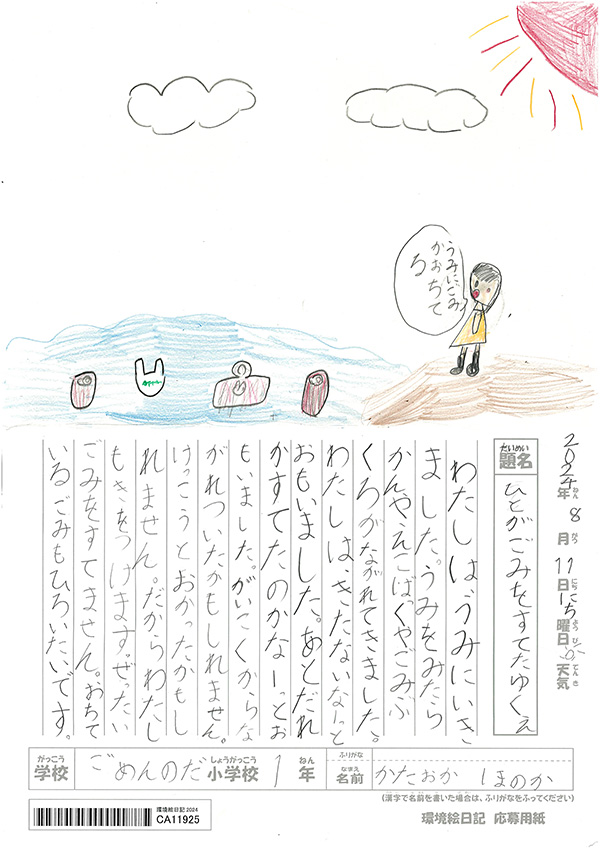 うみにごみ
がおちて
る
2024年 8月 11日 にち曜日 天気
ねん がつ にち ようび てんき
だいめい
題名
ひとがごみをすてたゆくえ
わたしは、うみにいき
ました。うみをみたら
かんや、えこばっくやごみぶ
くろがながれてきました。
わたしは、きたないなーと
おもいました。あとだれ
かすてたのかなーっとお
もいました。がいこくからな
がれついたかもしれません。
けっこうとおかったかもし
れません。だからわたし
もきをつけます。ぜったい
ごみをすてません。おちて
いるごみもひろいたいです。
がっこう しょうがっこう ねん
学校 ごめんのだ 小学校 1年
ふりがな
なまえ
名前 かたおか ほのか
(漢字で名前を書いた場合は、ふりがなをふってください)
環境絵日記 2024
CA11925
環境絵日記 応募用紙